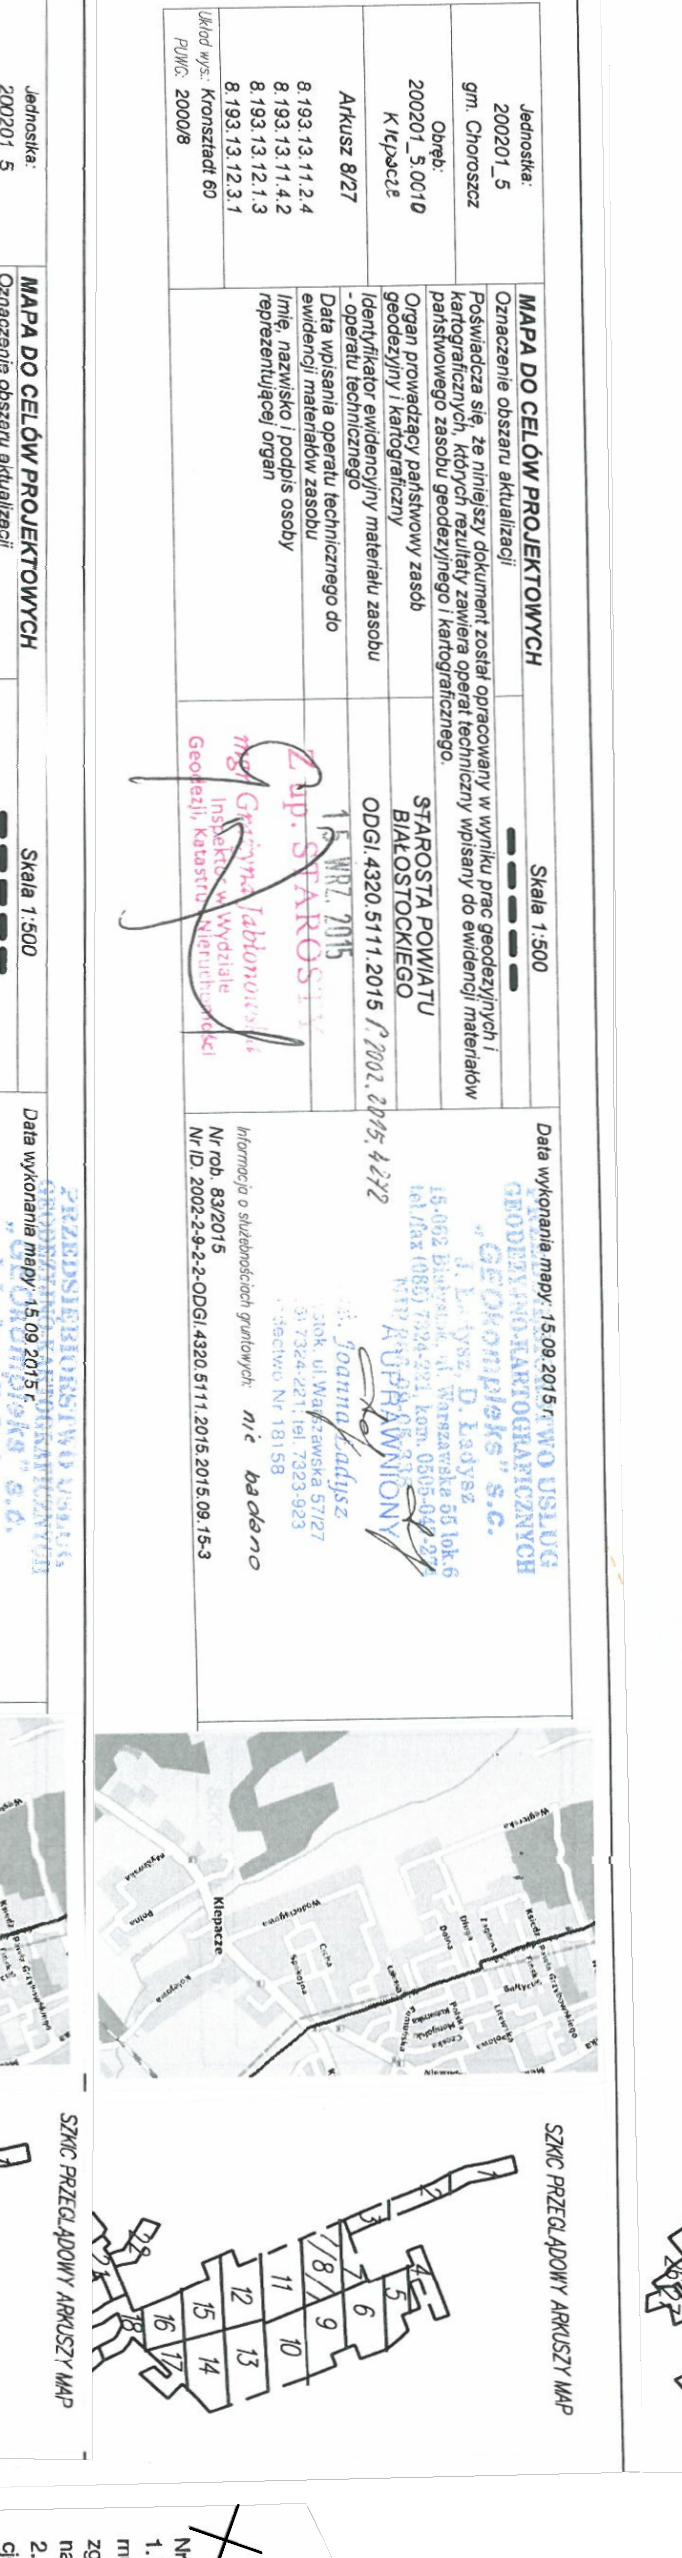 Jednostka:
200201_5
gm. Choroszcz
Obręb:
200201_5.0010
Klepacze
Arkusz 8/27
8.193.13.11.2.4
8.193.13.11.4.2
8.193.13.12.1.3
8.193.13.12.3.1
Układ wys.: Kronsztadt 60
PUWG: 2000/8
MAPA DO CELÓW PROJEKTOWYCH
Skala 1:500
Oznaczenie obszaru aktualizacji
Poświadcza się, że niniejszy dokument został opracowany w wyniku prac geodezyjnych i
kartograficznych, których rezultaty zawiera operat techniczny wpisany do ewidencji materiałów
państwowego zasobu geodezyjnego i kartograficznego.
Organ prowadzący państwowy zasób
geodezyjny i kartograficzny
STAROSTA POWIATU
BIAŁOSTOCKIEGO
Identyfikator ewidencyjny materiału zasobu
- operatu technicznego
ODGI.4320.5111.2015 P.2002.2015.4272
Data wpisania operatu technicznego do
ewidencji materiałów zasobu
15 WRZ. 2015
Imię, nazwisko i podpis osoby
reprezentującej organ
Z up. STAROSTY
mgr Grażyna Jabłonowska
Inspektor w Wydziale
Geodezji, Katastru i Nieruchomości
Data wykonania mapy: 15.09.2015 r.
GEODEZYJNO-KARTOGRAFICZNYCH
"GEOkompleks" s.c.
J. Ładysz, D. Ładysz
15-062 Białystok, ul. Warszawska 55 lok.6
tel./fax (085) 7324-221, kom.
UPRAWNIONY
Joanna Ładysz
ul. Warszawska 57/27
7324-221, tel. 7323-923
Nr 18158
Informacja o służebnościach gruntowych: nie badano
Nr rob. 83/2015
Nr ID. 2002-2-9-2-2-ODGI.4320.5111.2015.2015.09.15-3
Klepacze
Węgierska
Myśliwska
Polna
Kolejowa
Wodociągowa
Cicha
Spokojna
Dolna
Długa
Księdza Pawła Grzybowskiego
Bałtycka
Litewska
Polska
Czeska
SZKIC PRZEGLĄDOWY ARKUSZY MAP
1
2
3
4
5
6
7
8
9
10
11
12
13
14
15
16
17
18
21
22
Jednostka:
200201_5
MAPA DO CELÓW PROJEKTOWYCH
Skala 1:500
Oznaczenie obszaru aktualizacji
Data wykonania mapy: 15.09.2015 r.
PRZEDSIĘBIORSTWO USŁUG
GEODEZYJNO-KARTOGRAFICZNYCH
SZKIC PRZEGLĄDOWY ARKUSZY MAP
1
Nr
1.
2.